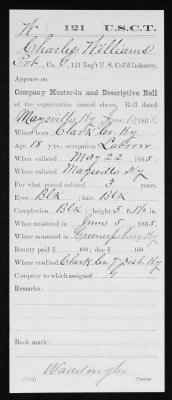 W 121 U.S.C.T.
Charles Williams
Pvt., Co. G, 121 Reg't U. S. Col'd Infantry.
Appears on
Company Muster-in and Descriptive Roll
of the organization named above. Roll dated
Maysville, Ky June 10, 1865.
Where born Clark Co. Ky
Age 18 y'rs; occupation Laborer
When enlisted May 22, 1865
Where enlisted Maysville Ky
For what period enlisted 3 years.
Eyes Blk; hair Blk
Complexion Blk; height 5 ft. in.
When mustered in June 5, 1865.
Where mustered in Greenupsburg Ky
Bounty paid $ 100; due $ 100
Where credited Clark Co 7 Dist. Ky
Company to which assigned
Remarks:
Book mark:
Copyist.